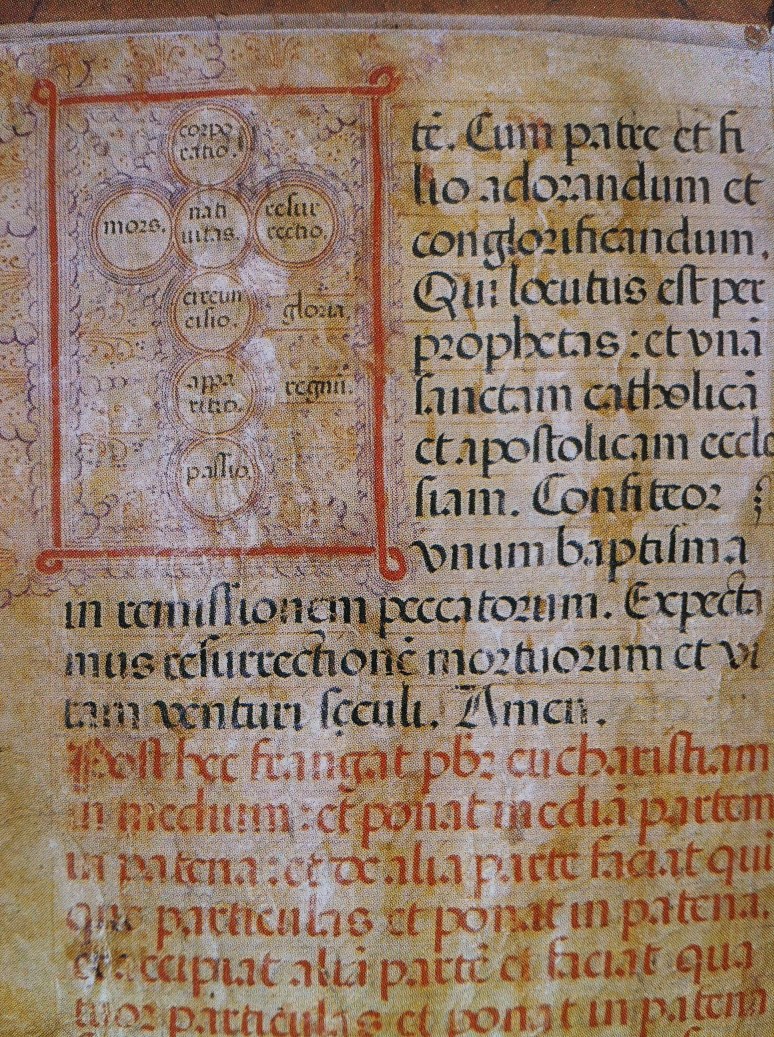 corpo
ratio.
mors.
nati
uitas.
resur
rectio.
circun
cisio.
gloria.
appa
ritio.
regnũ.
passio.
tẽ. Cum patre et fi
lio adorandum et
conglorificandum.
Qui locutus est per
prophetas : et vnã
sanctam catholicã
et apostolicam eccle
siam. Confiteor
vnum baptisma
in remissionem peccatorum. Expecta
mus resurrectionẽ mortuorum et vi
tam venturi sęculi. Amen.
Post hec frangat pbr eucharistiam
in medium : et ponat mediã partem
in patena : et de alia parte faciat qui
que particulas et ponat in patena.
et accipiat aliã partẽ et faciat qua
tuor particulas et ponat in patena